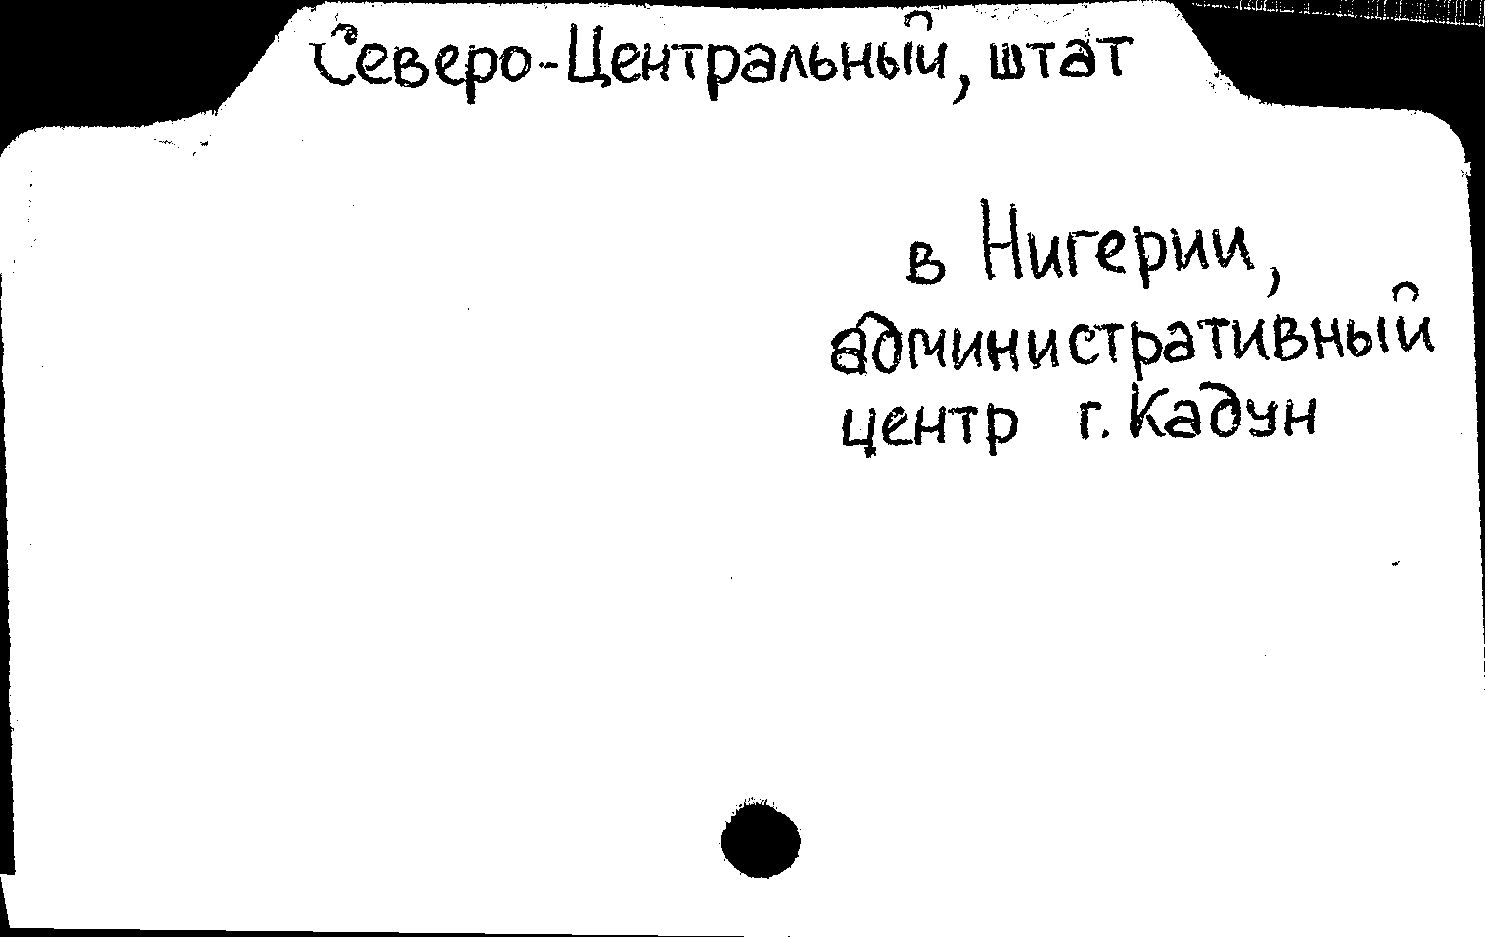 Северо-Центральный, штат
в Нигерии,
административный
центр г. Кадун